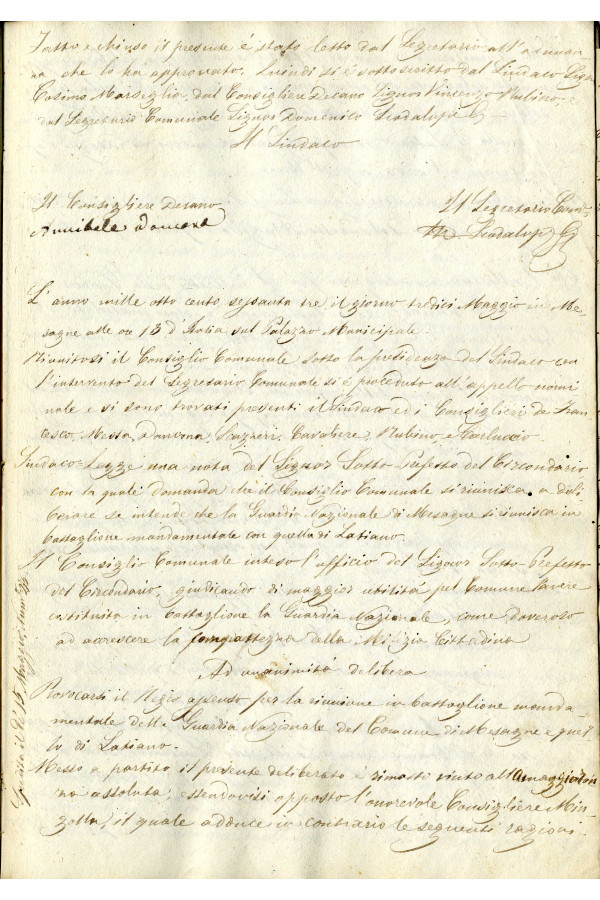 Fatto e chiuso il presente è stato letto dal Segretario all'adunan
za che lo ha approvato. Quindi si è sottoscritto dal Sindaco Signor
Cosimo Marseglia, dal Consigliere Decano Signor Vincenzo Rubino, e
dal Segretario Comunale Signor Domenico Scodalupi
Il Sindaco
Il Consigliere Decano
Annibale
Il Segretario Com
Scodalupi
L'anno mille otto cento sessanta tre, il giorno tredici Maggio in Me-
sagne alle ore 13 d'Italia sul Palazzo Municipale.
Riunitosi il Consiglio Comunale sotto la presidenza del Sindaco con
l'intervento del Segretario Comunale si è proceduto all'appello nomi
nale e si sono trovati presenti il Sindaco ed i Consiglieri de Fran
cesco, Cavaliere, Rubino, e
Sindaco Legge una nota del Signor Sotto Prefetto del Circondario
con la quale domanda che il Consiglio Comunale si riunisca a deli
berare se intende che la Guardia Nazionale di Mesagne si riunisca in
battaglione mandamentale con quella di Latiano.
Il Consiglio Comunale inteso l'ufficio del Signor Sotto-Prefetto
del Circondario, giudicando di maggior utilità pel Comune l'avere
costituita in battaglione la Guardia Nazionale, come doveroso
ad accrescere la compattezza della Milizia Cittadina
Ad unanimità delibera
Provocarsi il Regio assenso per la riunione in battaglione manda-
mentale della Guardia Nazionale del Comune di Mesagne e quel
lo di Latiano.
Messo a partito il presente deliberato è rimasto vinto all maggioran
za assoluta, essendovisi opposto l'onorevole Consigliere
il quale adduce in contrario le seguenti ragioni.
il dì 15 Maggio